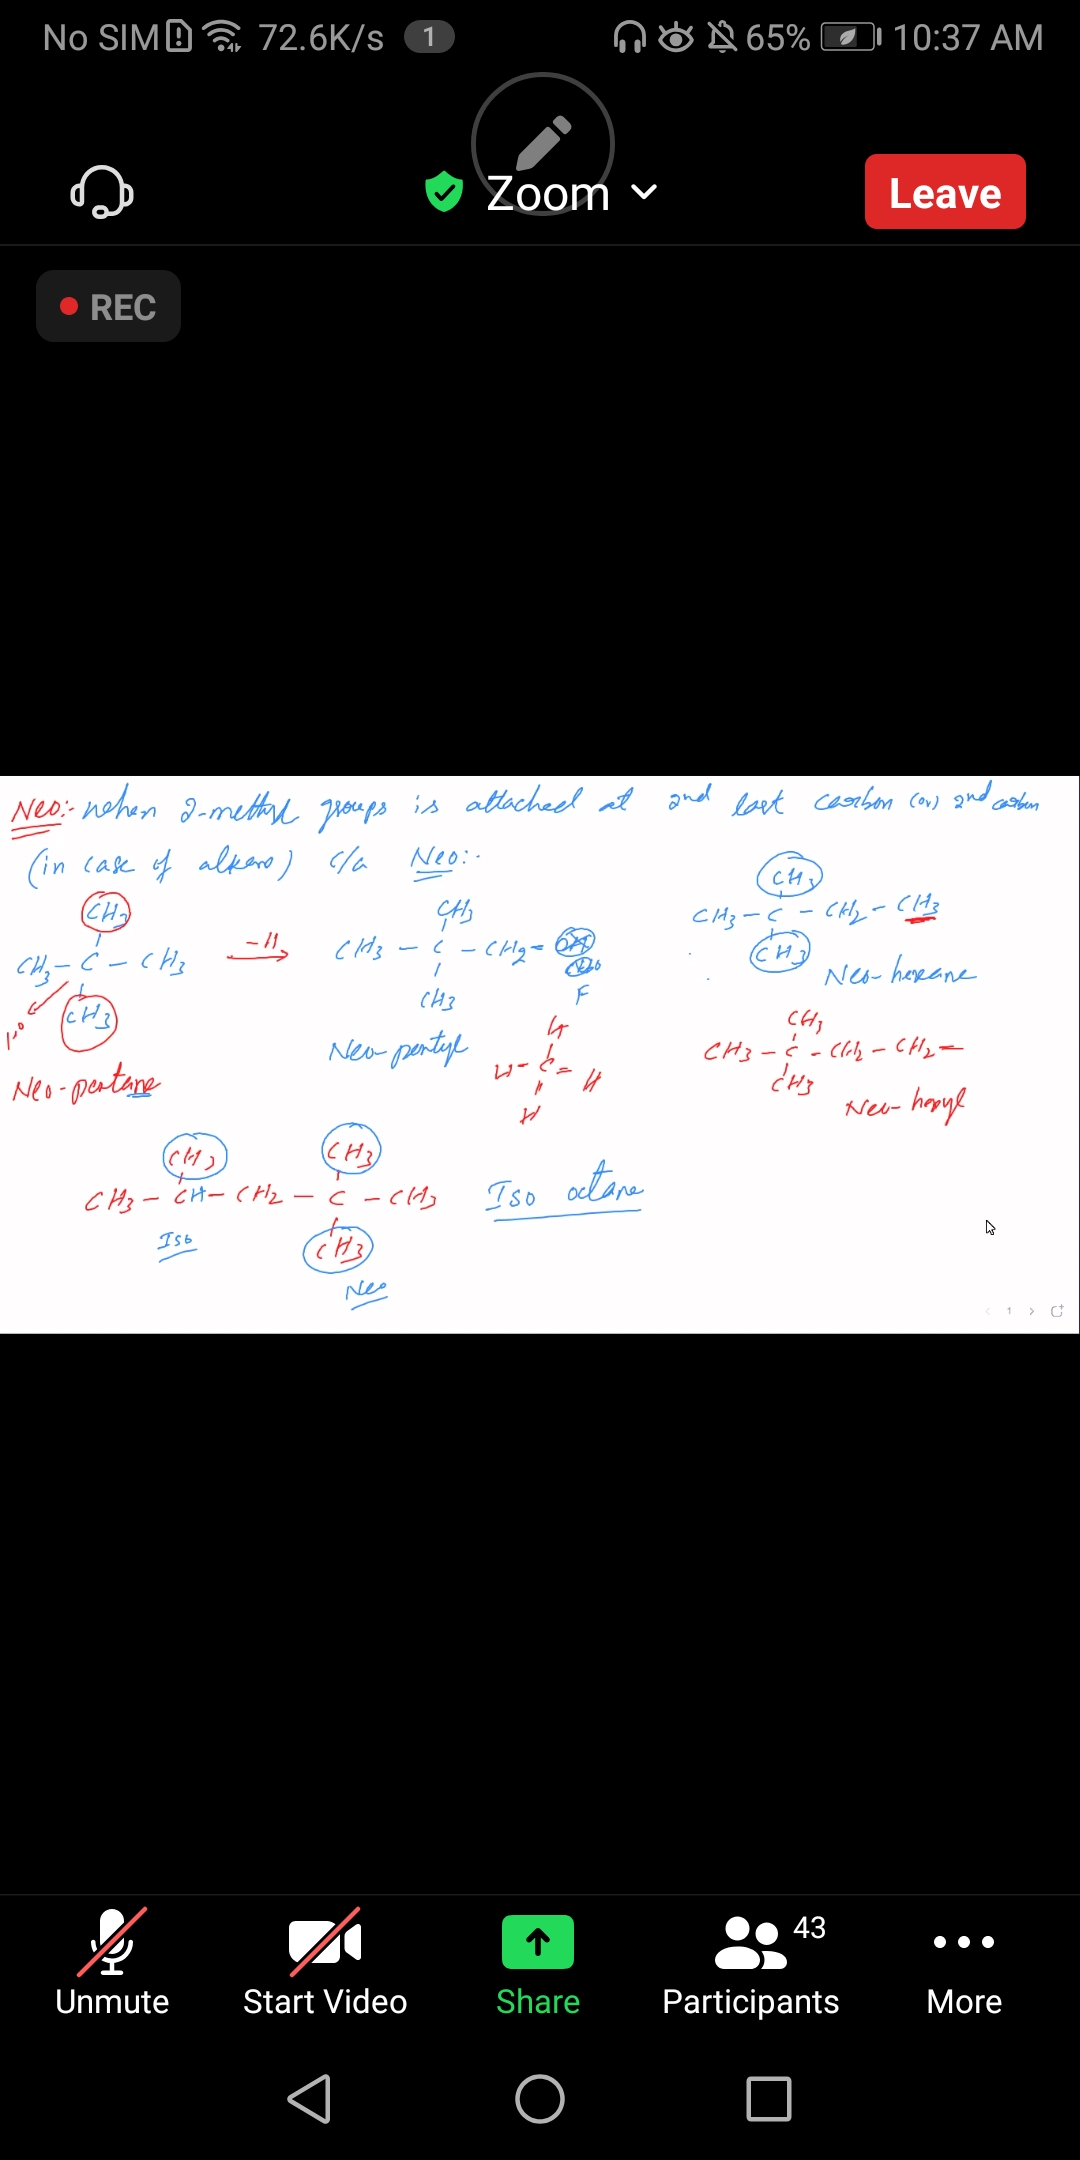 No SIM 72.6K/s 1 65% 10:37 AM
Zoom
Leave
REC
Neo:- when 2-methyl groups is attached at 2nd last carbon (or) 2nd carbon
(in case of alkane) c/a Neo:-
CH3
CH3 - C - CH3
CH3
1°
Neo-pentane
-H
CH3
CH3 - C - CH2 -
CH3
F
Neo-pentyl
H
H - C - H
H
CH3
CH3 - C - CH2 - CH3
CH3
Neo-hexane
CH3
CH3 - C - CH2 - CH2 -
CH3
Neo-hexyl
CH3 CH3
CH3 - CH - CH2 - C - CH3
CH3
Iso
Neo
Iso octane
1
43
Unmute Start Video Share Participants More